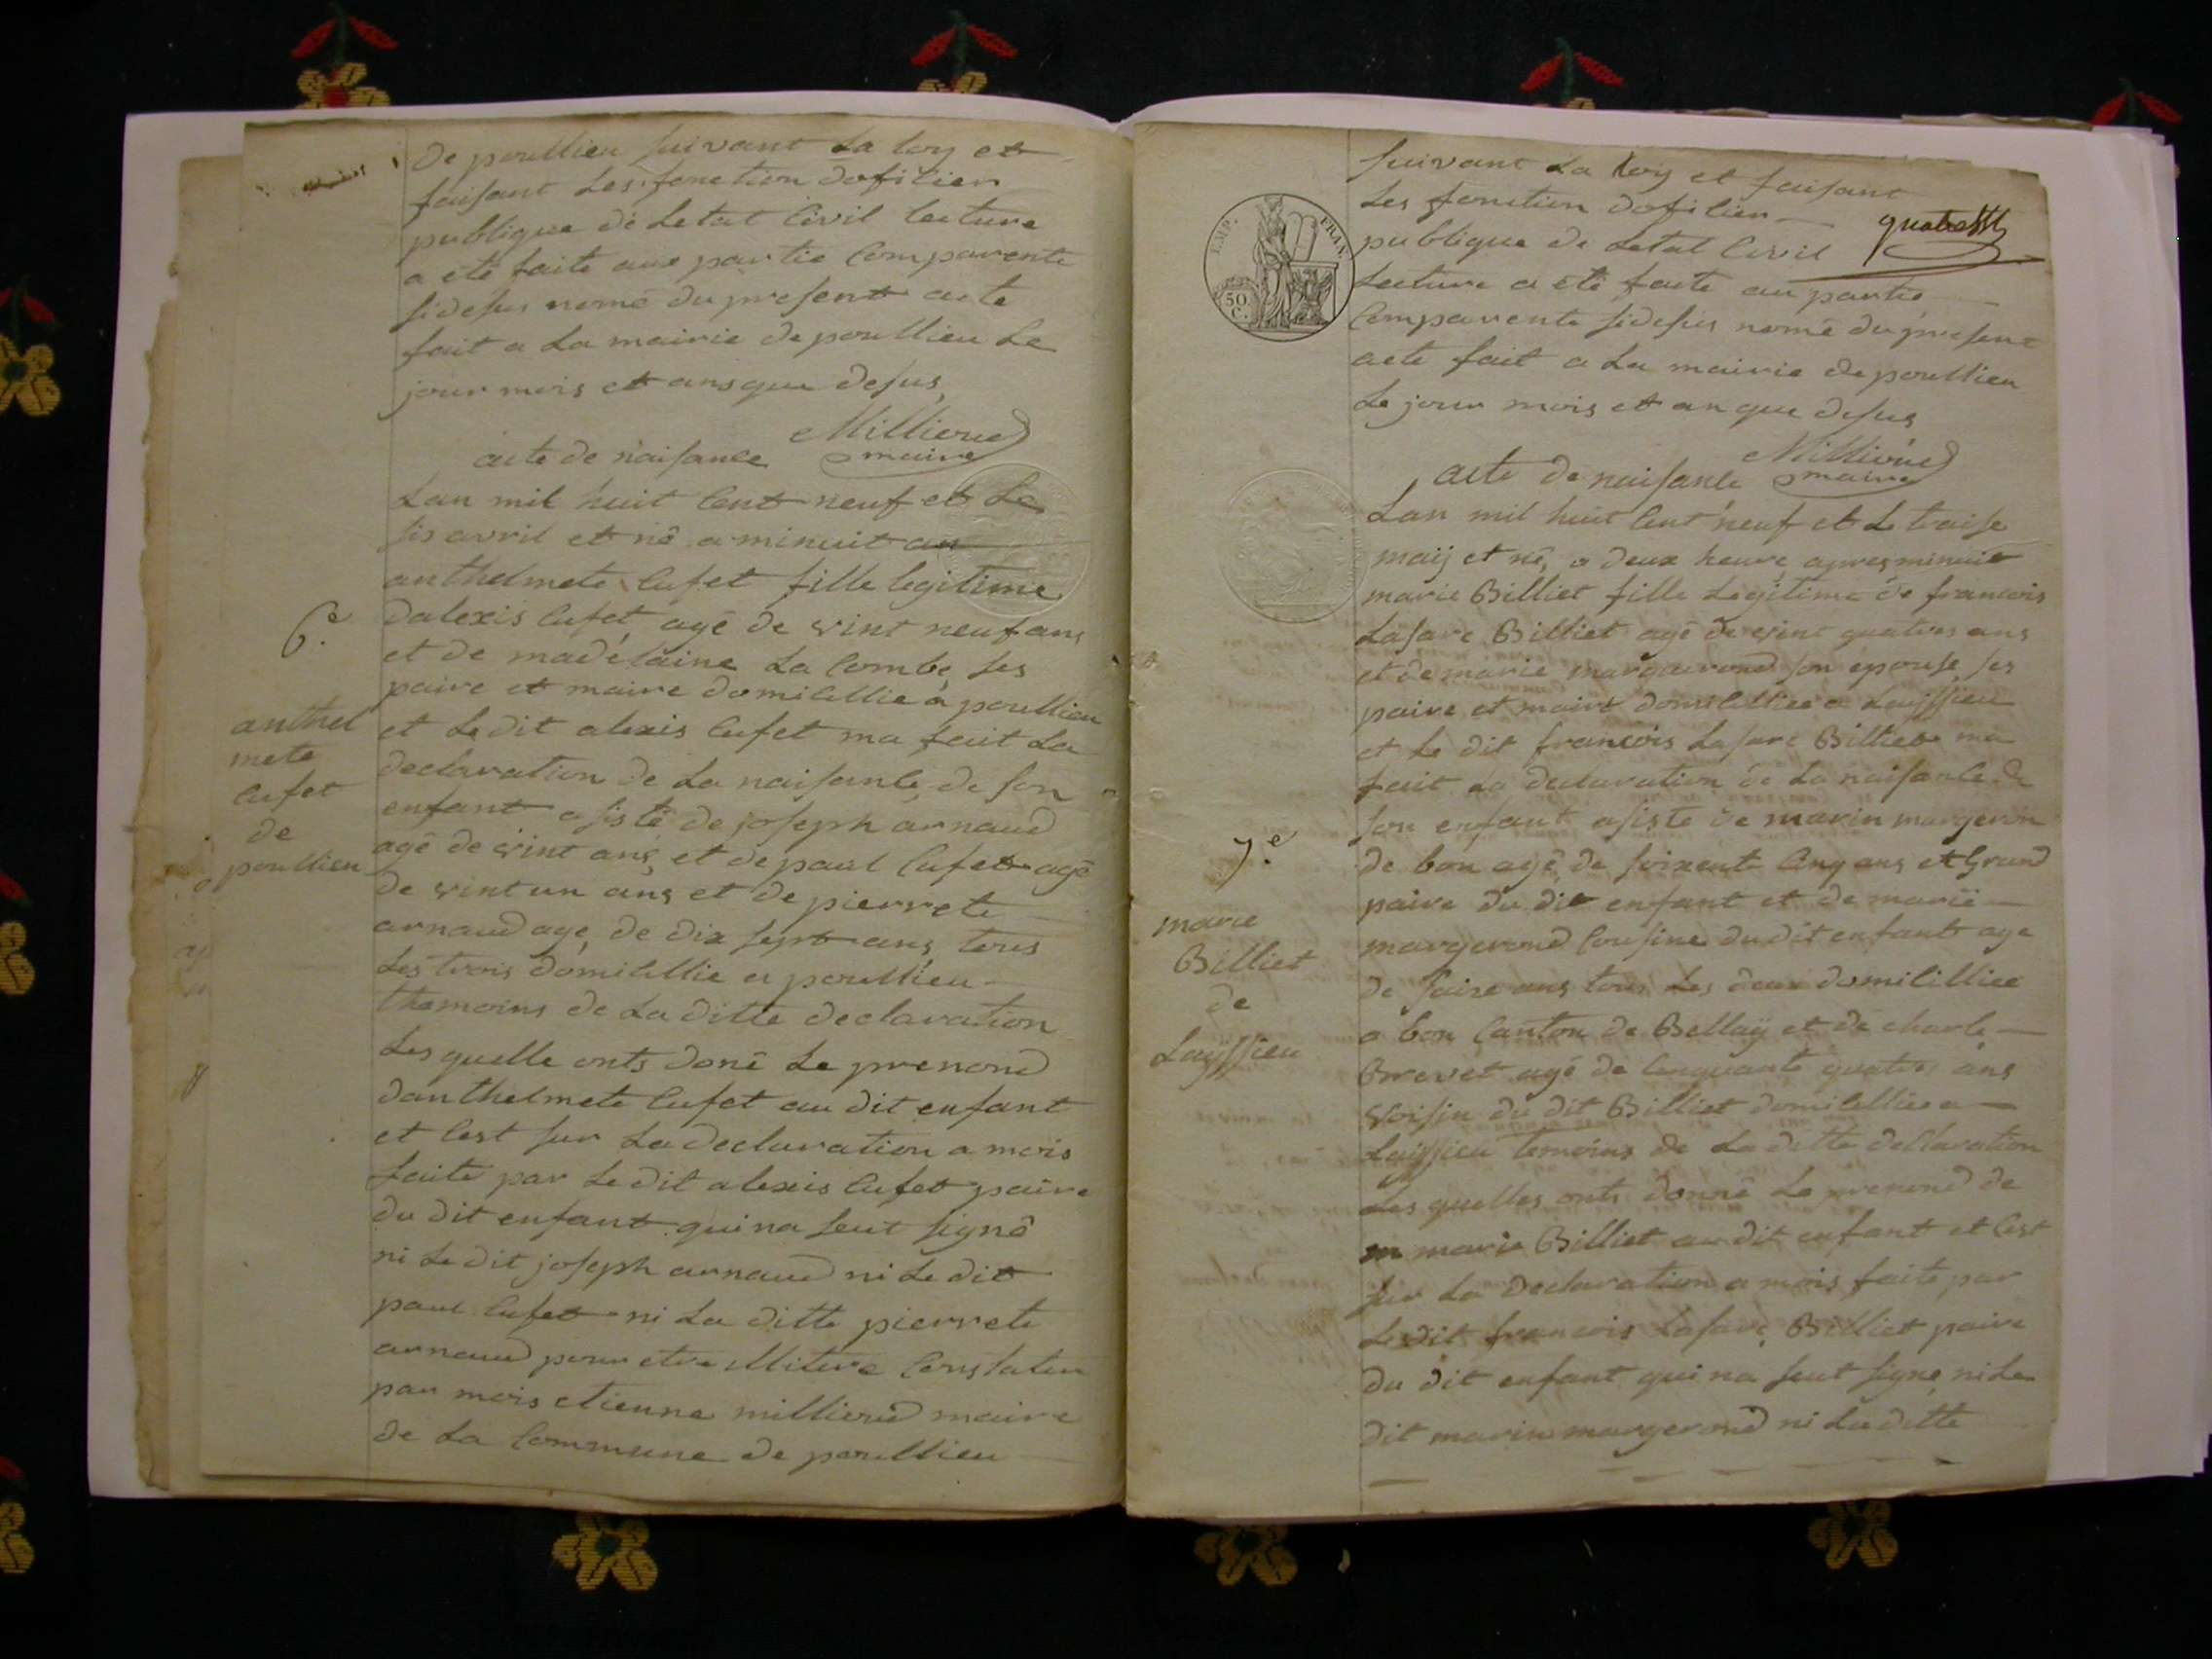 De poullieu suivant La loy et
faisant Les fonction dofisier
publique de Letat Civil lecture
a eté faite aux partie Comparente
sidesus nomé du present acte
fait a La mairie de poullieu Le
jour mois et ans que desus
Millieret
maire
acte de naisance
Lan mil huit Cent neuf et Le
sis avril et né a minuit
anthelmete Cufet fille legitime
dalexis Cufet agé de vint neuf ans
et de madélaine La Combe ses
paire et maire domicillie a poullieu
et Le dit alexis Cufet ma fait La
declaration de La naisance de son
enfant asisté de joseph arnaud
agé de vint ans et de paul Cufet agé
de vint un ans et de pierrete
arnaud agé de dix sept ans tous
Les trois domicillie a poullieu
themoins de La ditte declaration
Les quelle onts doné Le prenond
danthelmete Cufet au dit enfant
et Cest sur La declaration a mois
faite par Le dit alexis Cufet paire
du dit enfant qui na seut signé
ni Le dit joseph arnaud ni Le dit
paul Cufet ni La ditte pierrete
arnaud pour etre Constater
par mois etienne millieret maire
de La Commune de poullieu
6.e
anthel
mete
Cufet
de
poullieu
suivant La loy et faisant
Les fonction dofisier
publique de Letat Civil
Lecture a eté faite au partie
Comparente sidesus nomé du present
acte fait a La mairie de poullieu
Le jour mois et an que desus
EMP. FRAN.
50 C.
Millieret
maire
acte de naisance
Lan mil huit Cent neuf et Le traise
maij et né a deux heure apres minuit
marie Billiet fille Legitime de francois
Lasare Billiet agé de vint quatres ans
et de marie margeurond son epouse ses
paire et maire domicilliee a Luyssieu
et Le dit francois Lasare Billiet ma
fait La declaration de La naisance de
son enfant asisté de marin margeron
de bon agé de soixente Cinq ans et Grand
paire du dit enfant et de marie
margerond Cousine du dit enfant age
de saise ans tous Les deux domicilliee
a bon Canton de Bellay et de charle
Brevet agé de Cinquante quatres ans
voisin du dit Billiet domicilliee a
Luissieu temoins de La ditte declaration
Les quelles onts donné Le prenond de
marie Billiet au dit enfant et Cest
sur La declaration a mois faite par
Le dit francois Lasare Billiet paire
du dit enfant qui na seut signe ni Le
dit marin margerond ni La ditte
7.e
marie
Billiet
de
Luyssieu